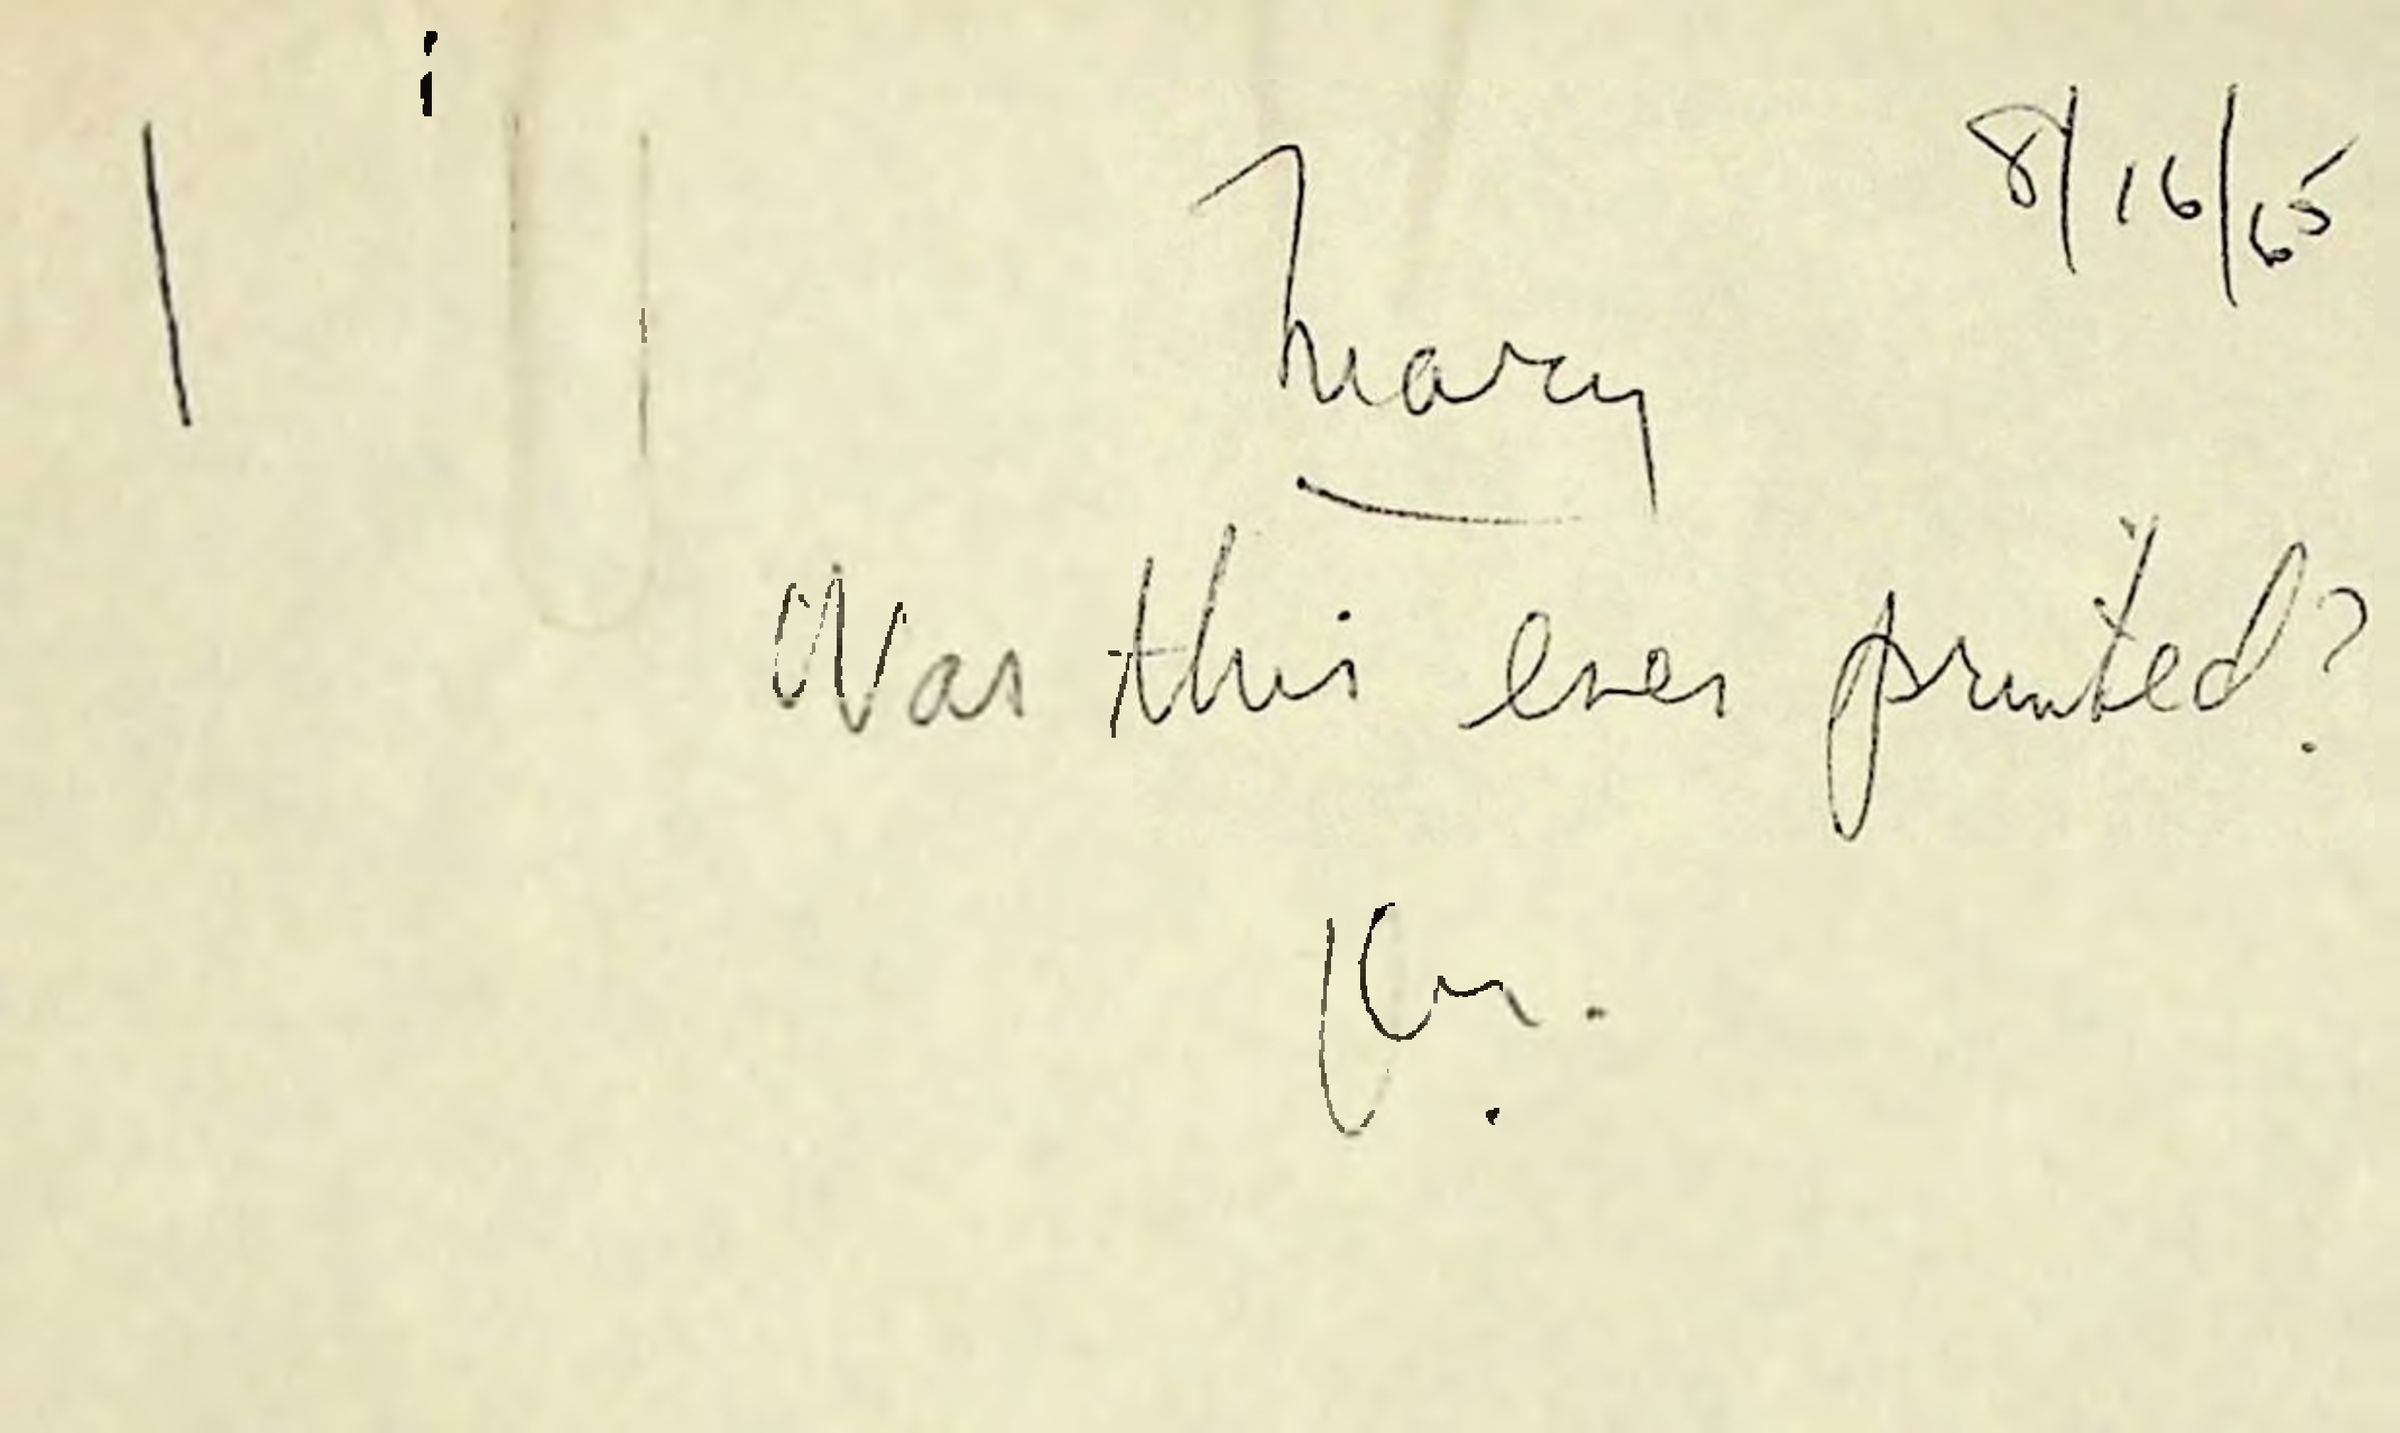 8/16/65
Mary
Was this ever printed?